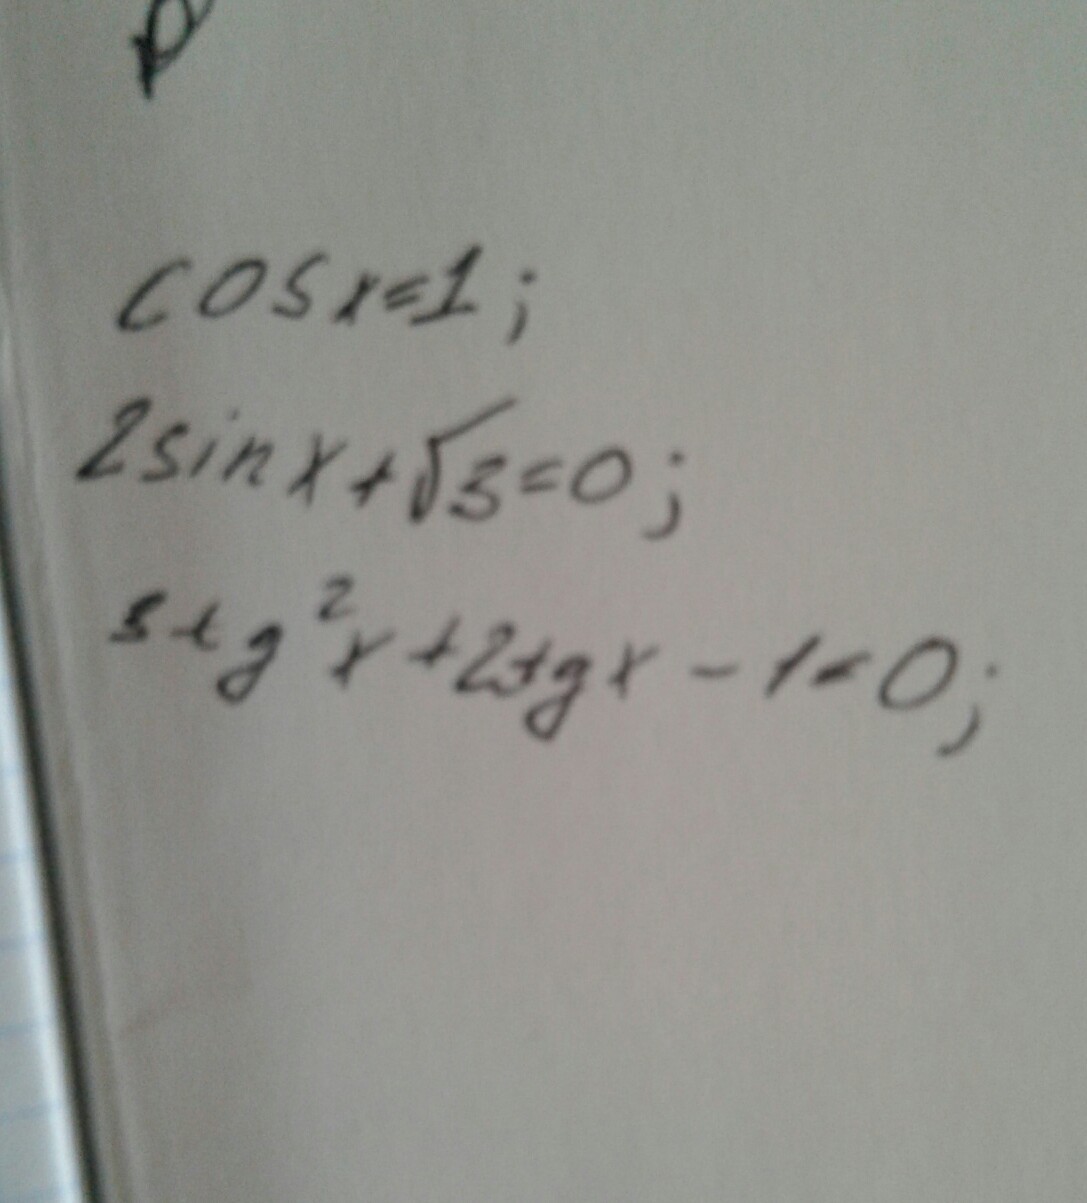 cosx=1;
2sinx+√3=0;
3tg²x+2tgx-1=0;